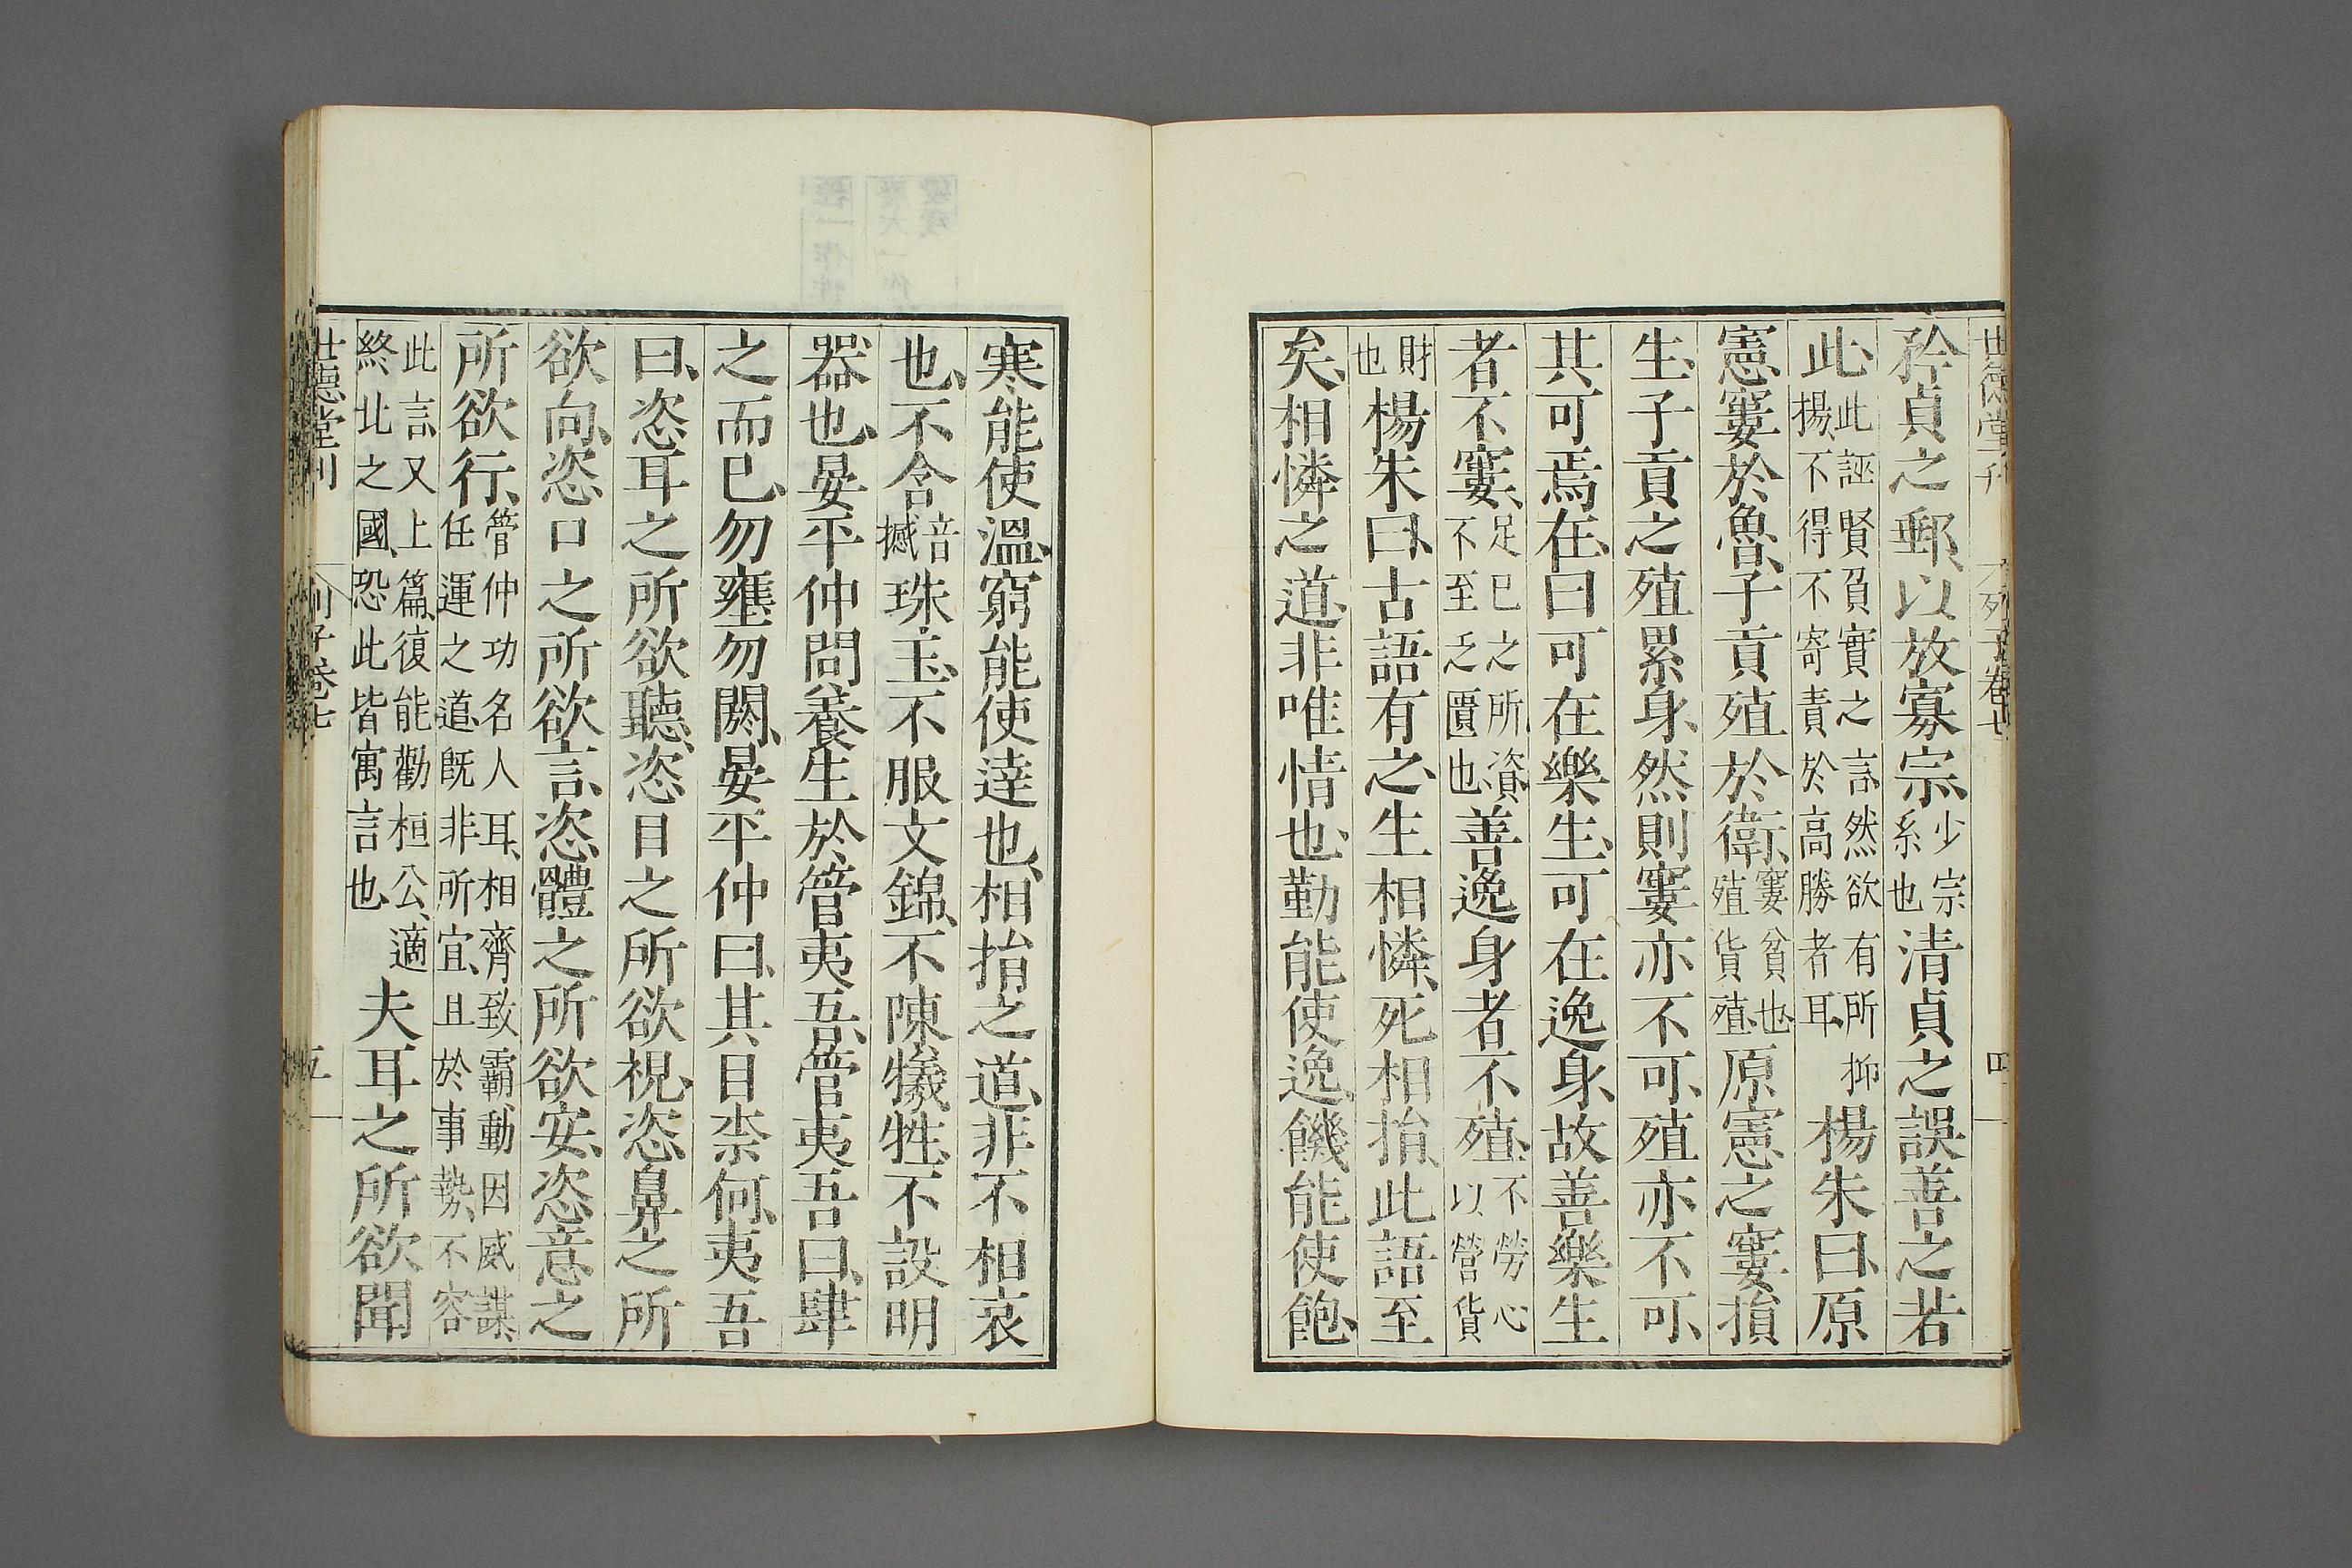 世德堂刊 列子卷七 四
矜貞之郵、以放寡宗、少宗系也清貞之誤善之若
此、此誣賢負實之言、然欲有所抑揚、不得不寄責於高勝者耳、楊朱曰、原
憲窶於魯、子貢殖於衛、窶貧也、殖貨殖、原憲之窶損
生、子貢之殖累身、然則窶亦不可、殖亦不可、
其可焉在、曰可在樂生、可在逸身、故善樂生
者不窶、足已之所資、不至乏匱也、善逸身者不殖、不勞心以營貨
財也楊朱曰、古語有之、生相憐、死相捐、此語至
矣、相憐之道、非唯情也、勤能使逸、饑能使飽、
寒能使溫、窮能使達也、相捐之道、非不相哀
也、不含音撼珠玉、不服文錦、不陳犧牲、不設明
器也、晏平仲問養生於管夷吾、管夷吾曰、肆
之而已、勿壅勿闕、晏平仲曰、其目柰何、夷吾
曰、恣耳之所欲聽、恣目之所欲視、恣鼻之所
欲向、恣口之所欲言、恣體之所欲安、恣意之
所欲行、管仲功名人耳、相齊致霸、動因威謀、任運之道、既非所宜、且於事勢、不容
此言、又上篇、復能勸桓公、適終北之國、恐此皆寓言也、夫耳之所欲聞
世德堂刊 列子卷七 五